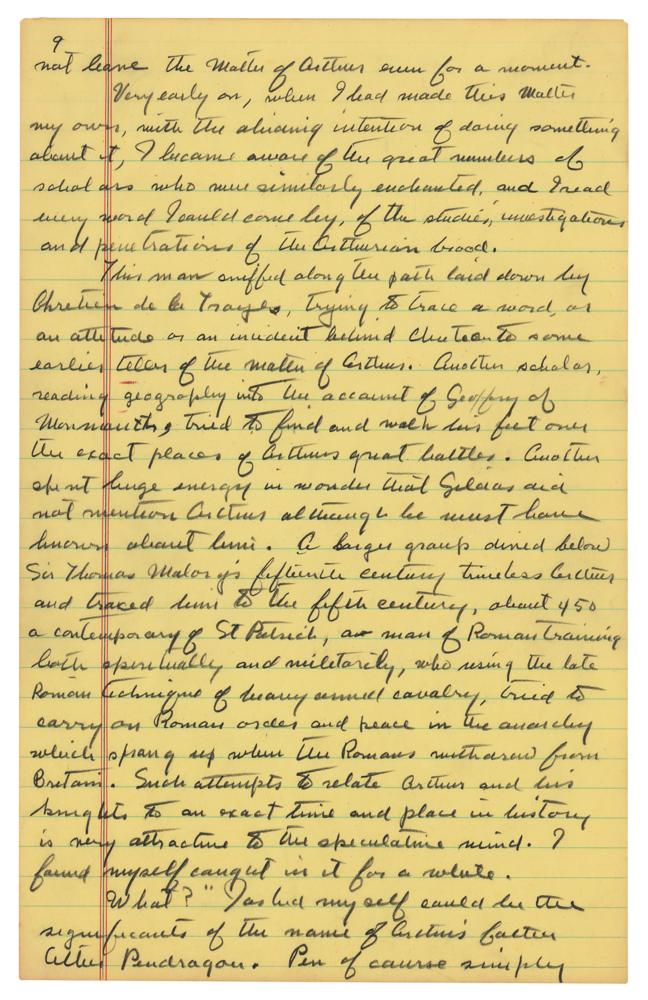 9
not leave the Matter of Arthur even for a moment.
Very early on, when I had made this Matter
my own, with the abiding intention of doing something
about it, I became aware of the great numbers of
scholars who were similarly enchanted, and I read
every word I could come by, of the studies, investigations
and penetrations of the Arthurian brood.
This man sniffed along the path laid down by
Chretien de la Troyes, trying to trace a word, or
an attitude or an incident behind Chretien to some
earlier teller of the matter of Arthur. Another scholar,
reading geography into the account of Geoffrey of
Monmouth, tried to find and walk his feet over
the exact places of Arthurs great battles. Another
spent huge energy in wonder that Gildas did
not mention Arthur although he must have
known about him. A larger group dived below
Sir Thomas Malory's fifteenth century timeless Arthur
and traced him to the fifth century, about 450
a contemporary of St Patrick, a man of Roman training
both spiritually and militarily, who using the late
Roman technique of heavy armed cavalry, tried to
carry on Roman order and peace in the anarchy
which sprang up when the Romans withdrew from
Britain. Such attempts to relate Arthur and his
knights to an exact time and place in history
is very attractive to the speculative mind. I
found myself caught in it for a while.
What?" I asked myself could be the
significants of the name of Arthurs father
Uther Pendragon. Pen of course simply